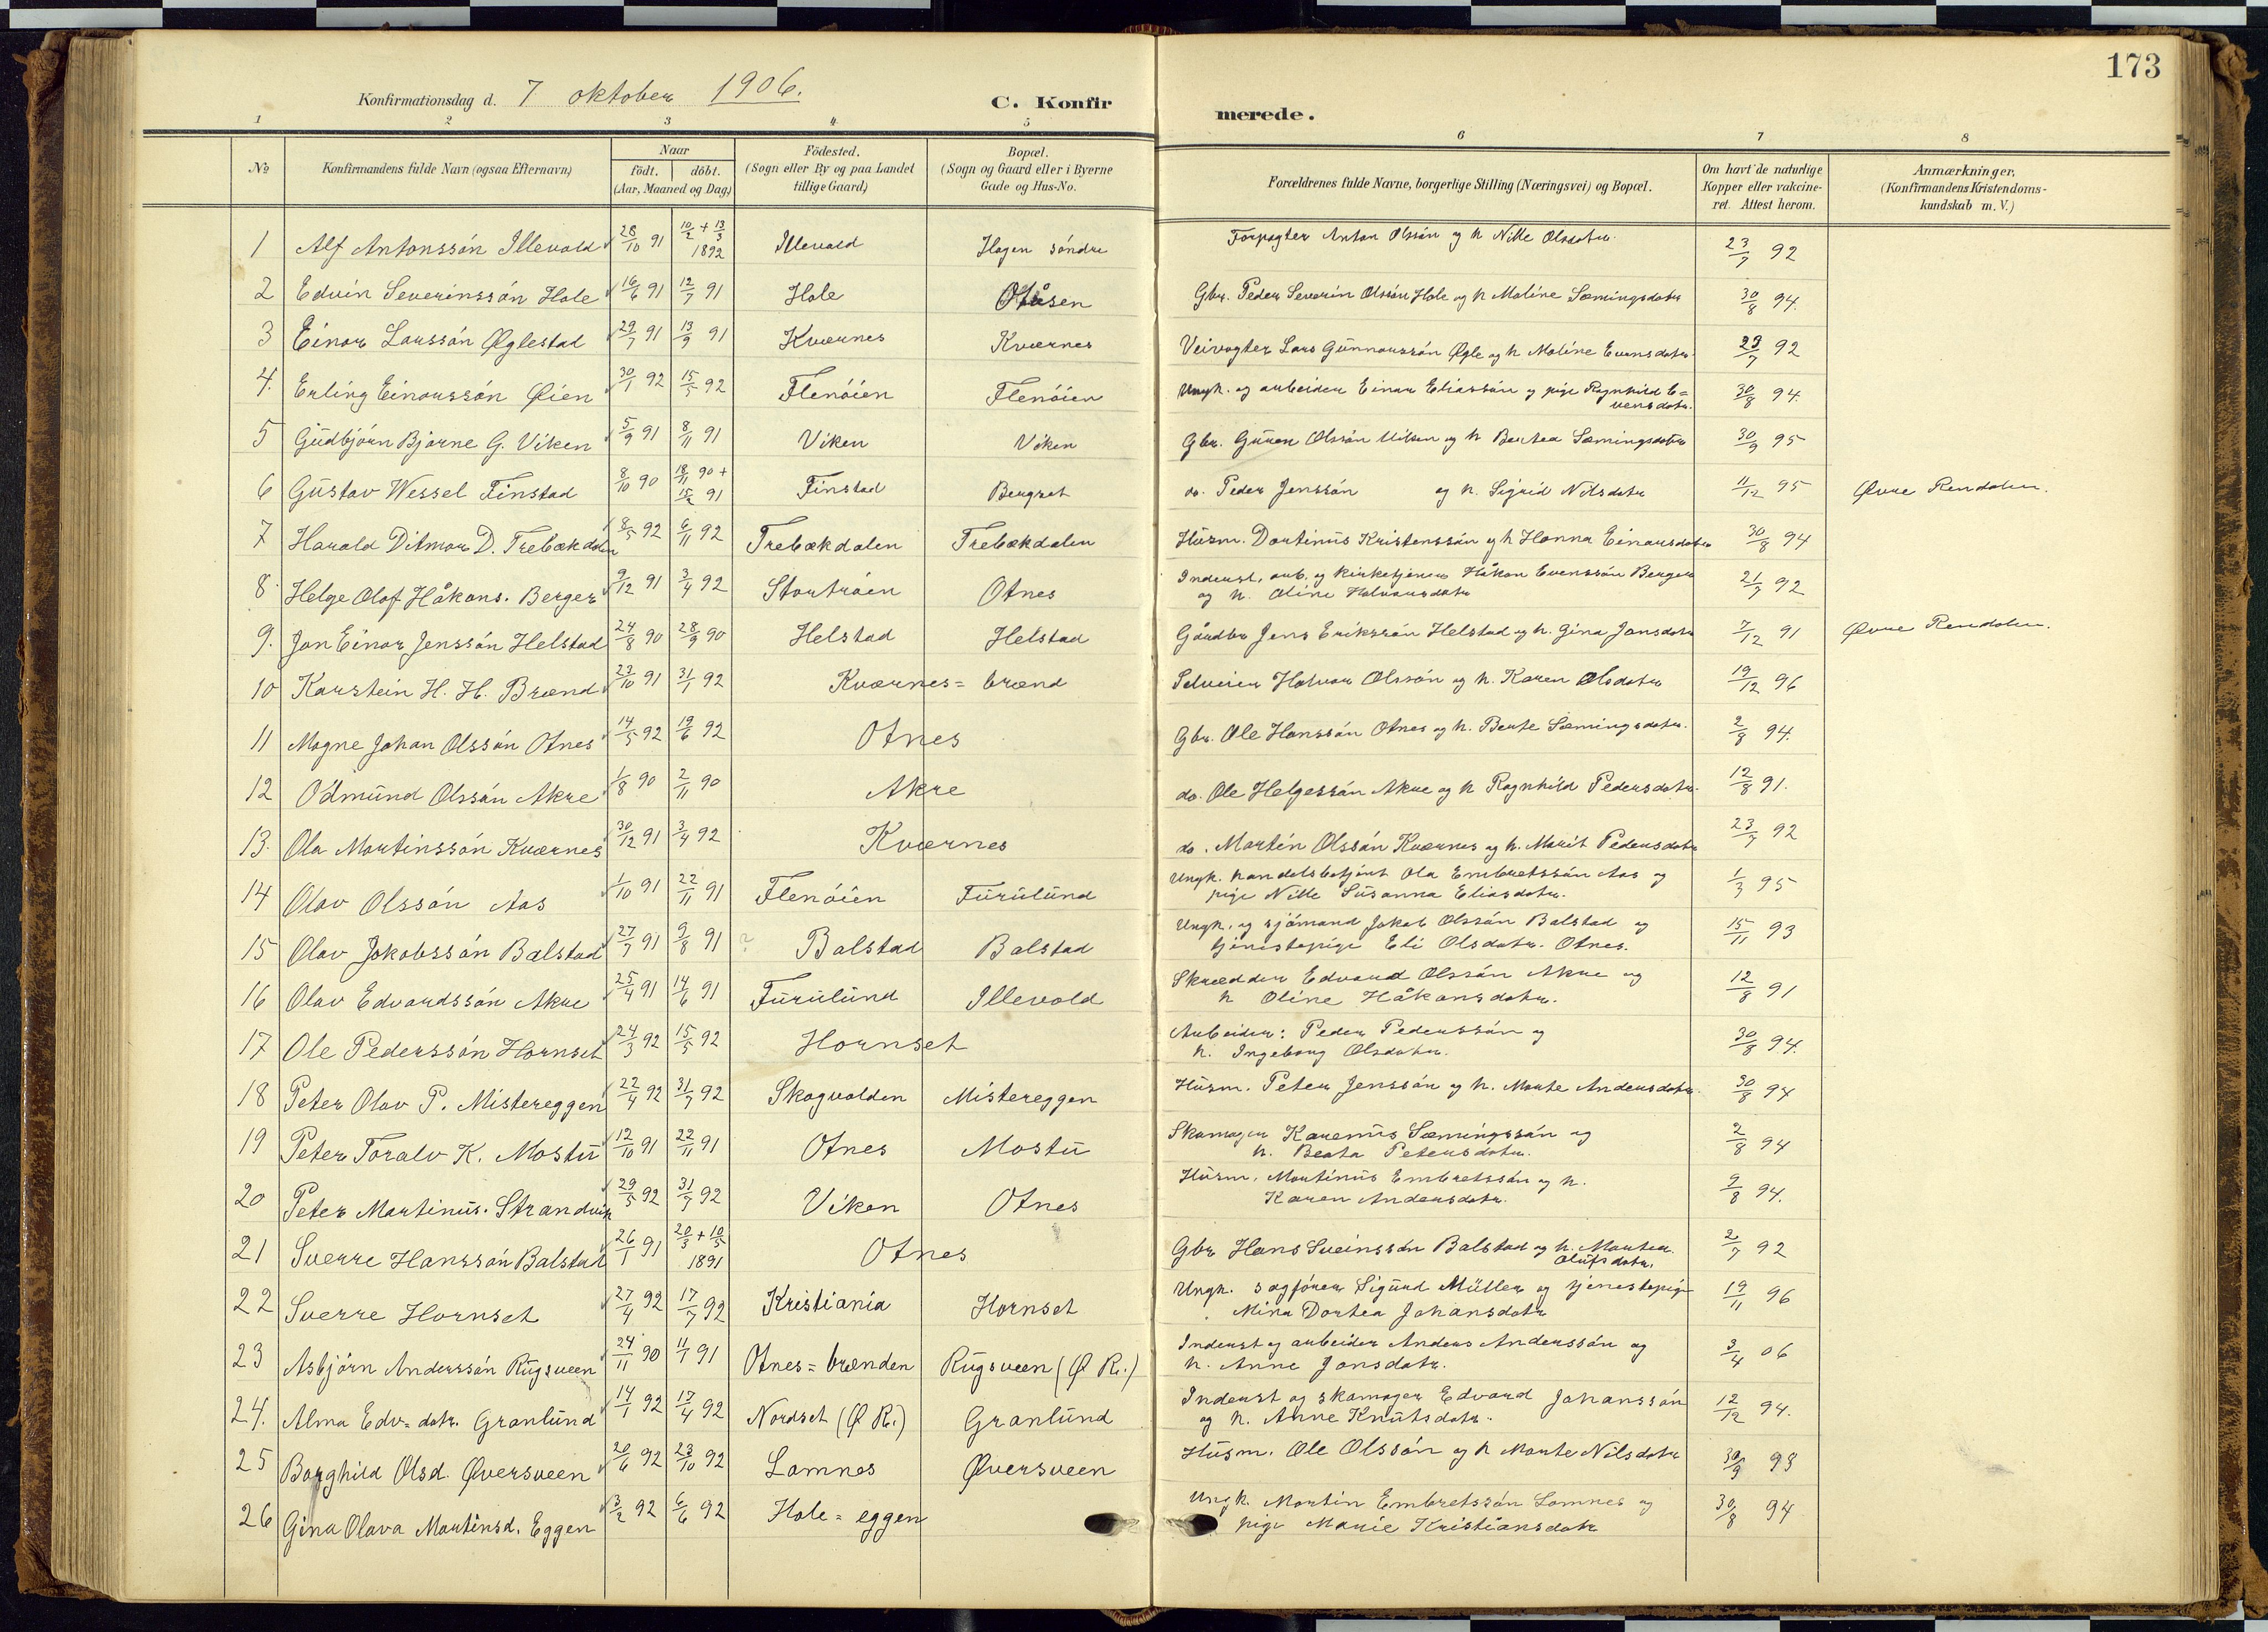 173
Konfirmationsdag d. 7 oktober 1906.
C. Konfirmerede.
1 2 3 4 5 6 7 8
No
Konfirmandens fulde Navn (ogsaa Efternavn)
Naar
födt. döbt.
(Aar, Maaned og Dag)
Födested.
(Sogn eller By og paa Landet
tillige Gaard)
Bopæl.
(Sogn og Gaard eller i Byerne
Gade og Hus-No.
Forældrenes fulde Navne, borgerlige Stilling (Næringsvei) og Bopæl.
Om havt de naturlige
Kopper eller vakcine-
ret. Attest herom.
Anmærkninger,
(Konfirmandens Kristendoms-
kundskab m.V.)
1 Alf Antonssón Illevold 28/10 91 10/2 + 13/3 1892 Illevold Hagen söndre Forpagter Anton Olssón og h Nille Olsdatr. 23/7 92
2 Edvin Severinssón Hole 16/6 91 12/7 91 Hole Otåsen Gbr. Peder Severin Olssón Hole og h Maline Sæmingsdatr 30/8 94.
3 Einar Larssón Øglestad 29/7 91 13/9 91 Kværnes Kværnes Veivogter Lars Gunnarssón Øgle og h Maline Evensdatr. 23/7 92
4. Erling Einarssón Øien 30/1 92 15/5 92 Flenöien Flenöien Ungk. og arbeider Einar Eliassón og pige Ragnhild E=
vensdatr. 30/8 94.
5 Gudbjörn Bjarne G. Viken 5/9 91 8/11 91 Viken Viken Gbr. Guren Olssón Viken og h Bertea Sæmingsdatr 30/9 95
6 Gustav Wessel Finstad 8/10 90 18/11 90 + 15/2 91 Finstad Bergset do. Peder Jenssón og h. Sigrid Nilsdatr 11/12 95 Øvre Rendalen.
7 Harald Ditmar D. Trebækdalen 8/5 92 6/11 92 Trebækdalen Trebækdalen Husm. Dortinus Kristenssón og h Hanna Einarsdatr 30/8 94
8. Helge Olof Håkons. Berger 9/12 91 3/4 92 Stortröen Otnes Inderst, arb. og kirketjener Håkon Evenssón Berger
og h. Oline Halvorsdatr 21/7 92
9. Jon Einar Jenssón Helstad 24/8 90 28/9 90 Helstad Helstad Gårdbr Jens Erikssón Helstad og h. Gina Jonsdatr 7/12 91 Øvre Rendalen.
10 Karstein H. H. Brænd 23/10 91 31/1 92 Kværnes=brænd Selveier Halvor Olssón og h. Karen Olsdatr 19/12 96
11 Magne Johan Olssón Otnes 14/5 92 19/6 92 Otnes Gbr. Ole Hanssón Otnes og h. Berte Sæmingsdatr. 2/8 94.
12 Odmund Olssón Akre 1/8 90 2/11 90 Akre do. Ole Helgessón Akre og h Ragnhild Pedersdatr. 12/8 91.
13. Ola Martinssón Kværnes 30/12 91 3/4 92 Kværnes do. Martin Olssón Kværnes og h. Marit Pedersdatr 23/7 92
14 Olav Olssón Aas 1/10 91 22/11 91 Flenöien Furulund Ungk. handelsbetjent Ola Embretssón Aas og
pige Nille Susanna Eliasdatr. 1/3 95
15 Olav Jakobssón Balstad 27/7 91 9/8 91 ? Balstad Balstad Ungk. og sjömand Jakob Olssón Balstad og
tjenestepige Eli Olsdatr. Otnes. 15/11 93
16 Olav Edvardssón Akre 25/4 91 14/6 91 Furulund Illevold Skrædder Edvard Olssón Akre og
h Oline Håkonsdatr. 12/8 91
17 Ole Pederssón Hornset 24/3 92 15/5 92 Hornset Arbeider: Peder Pederssón og
h. Ingeborg Olsdatr. 30/8 94.
18 Peter Olav P. Mistereggen 22/4 92 31/7 92 Skogvolden Mistereggen Husm. Peter Jenssón og h. Marte Andersdatr. 30/8 94
19 Peter Toralv K. Mostu 12/10 91 22/11 91 Otnes Mostu Skomager Karenus Sæmingssón og
h. Beata Petersdatr. 2/8 94
20 Peter Martinus. Strandvik 29/5 92 31/7 92 Viken Otnes Husm. Martinus Embretssón og h.
Karen Andersdatr. 9/8 94.
21 Sverre Hanssón Balstad 26/1 91 20/3 + 10/5 1891 Otnes Gbr Hans Sveinssón Balstad og h. Martea
Olufsdatr. 2/7 92
22 Sverre Hornset 27/4 92 17/7 92 Kristiania Hornset Ungk. sagförer Sigurd Müller og tjenestepige
Mina Dortea Johansdatr 19/11 96
23 Asbjörn Anderssón Rugsveen 24/11 90 11/1 91 Otnes=brænden Rugsveen (Ø R.) Inderst og arbeider Anders Anderssón og
h. Anne Jonsdatr. 3/4 06
24. Alma Edv=datr. Granlund 14/1 92 17/4 92 Nordset (Ø R.) Granlund Inderst og skomager Edvard Johanssón
og h. Anne Knutsdatr. 12/12 94.
25 Borghild Olsd. Øversveen 20/6 92 23/10 92 Lomnes Øversveen Husm. Ole Olssón og h Marte Nilsdatr 30/9 93
26 Gina Olava Martinsd. Eggen 3/2 92 6/6 92 Hole=eggen Ungk. Martin Embretssón Lomnes og
pige Marie Kristiansdatr 30/8 94